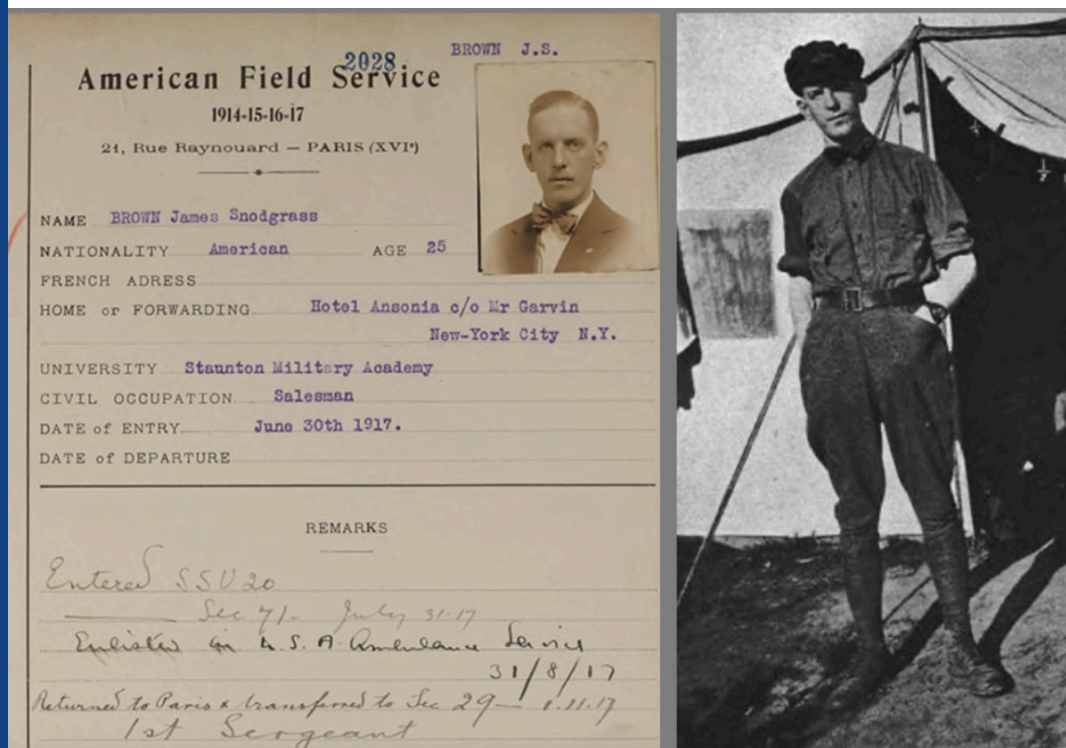 BROWN J.S.
2028
American Field Service
1914-15-16-17
21, Rue Raynouard — PARIS (XVIᵉ)
NAME BROWN James Snodgrass
NATIONALITY American AGE 25
FRENCH ADRESS
HOME or FORWARDING Hotel Ansonia c/o Mr Garvin
New-York City N.Y.
UNIVERSITY Staunton Military Academy
CIVIL OCCUPATION Salesman
DATE of ENTRY June 30th 1917.
DATE of DEPARTURE
REMARKS
Entered SSU 20
Sec 71- July 31-17
Enlisted in U.S.A Ambulance Service
31/8/17
Returned to Paris & transferred to Sec 29— 1.11.17
1st Sergeant